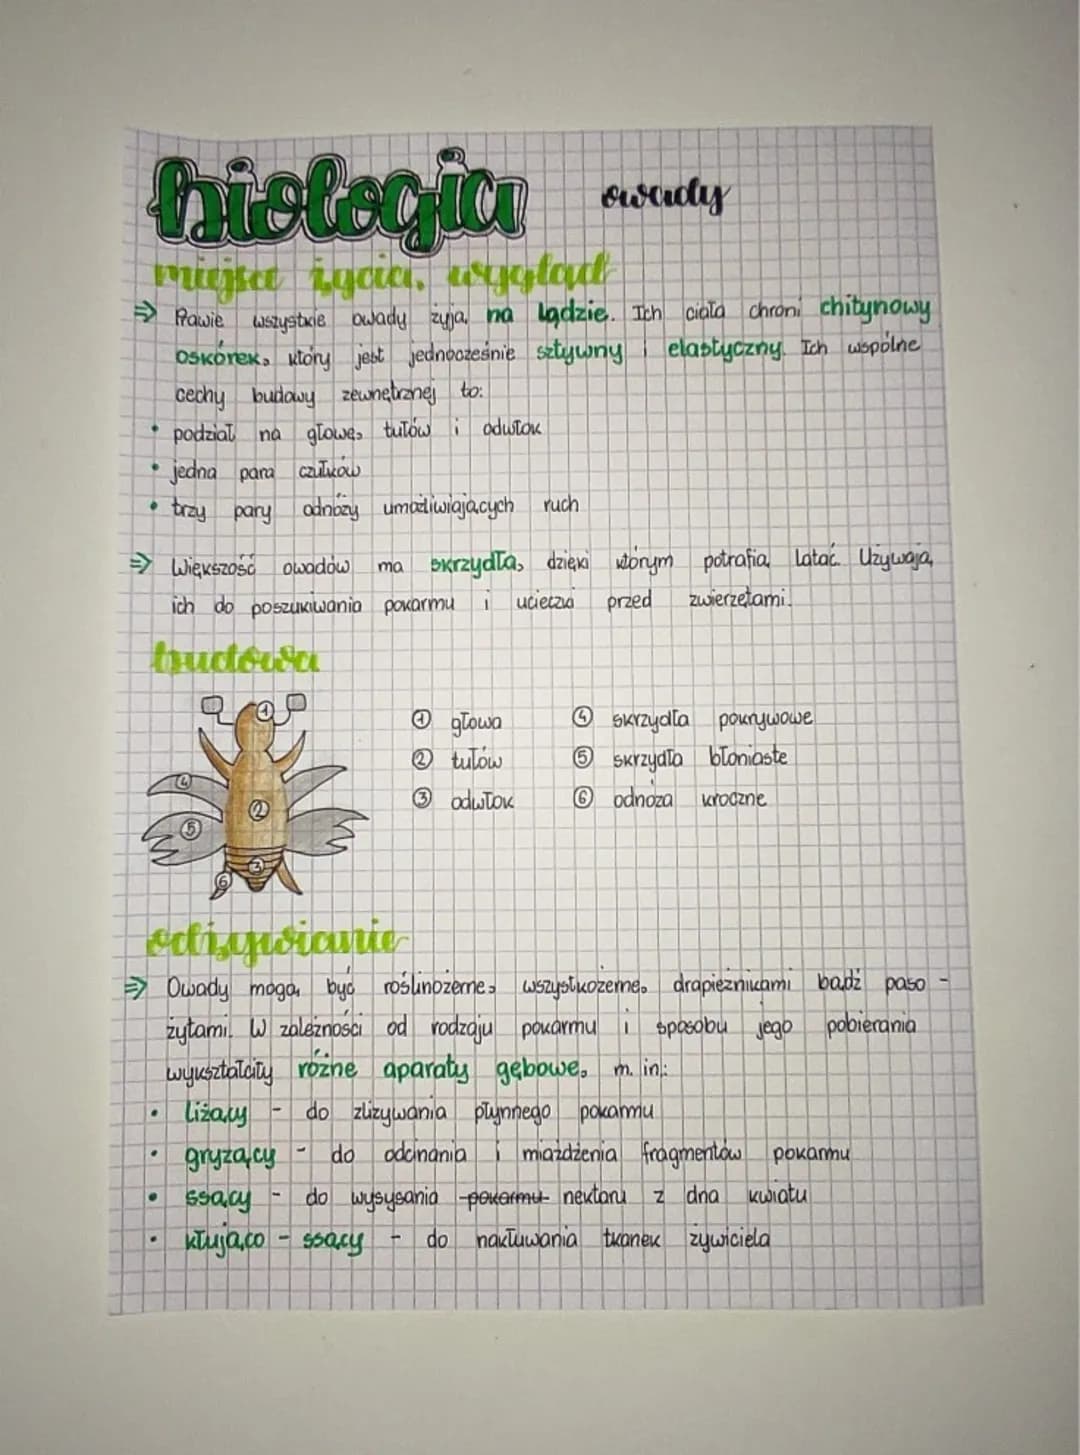 biologia owady
miejsca życia, wygląd
⇒ Prawie wszystkie owady żyją na lądzie. Ich ciała chroni chitynowy
oskórek, który jest jednocześnie sztywny i elastyczny. Ich wspólne
cechy budowy zewnętrznej to:
• podział na głowę, tułów i odwłok
• jedna para czułków
• trzy pary odnóży umożliwiających ruch
⇒ Większość owadów ma skrzydła, dzięki którym potrafią latać. Używają
ich do poszukiwania pokarmu i ucieczki przed zwierzętami.
budowa
① głowa ④ skrzydła pokrywowe
② tułów ⑤ skrzydła błoniaste
③ odwłok ⑥ odnóża kroczne
1
4
2
5
3
6
odżywianie
⇒ Owady mogą być roślinożerne, wszystkożerne, drapieżnikami bądź paso -
żytami. W zależności od rodzaju pokarmu i sposobu jego pobierania
wykształciły różne aparaty gębowe, m. in.:
• liżący - do zlizywania płynnego pokarmu
• gryzący - do odcinania i miażdżenia fragmentów pokarmu
• ssący - do wysysania pokarmu nektaru z dna kwiatu
• kłująco - ssący - do nakłuwania tkanek żywiciela